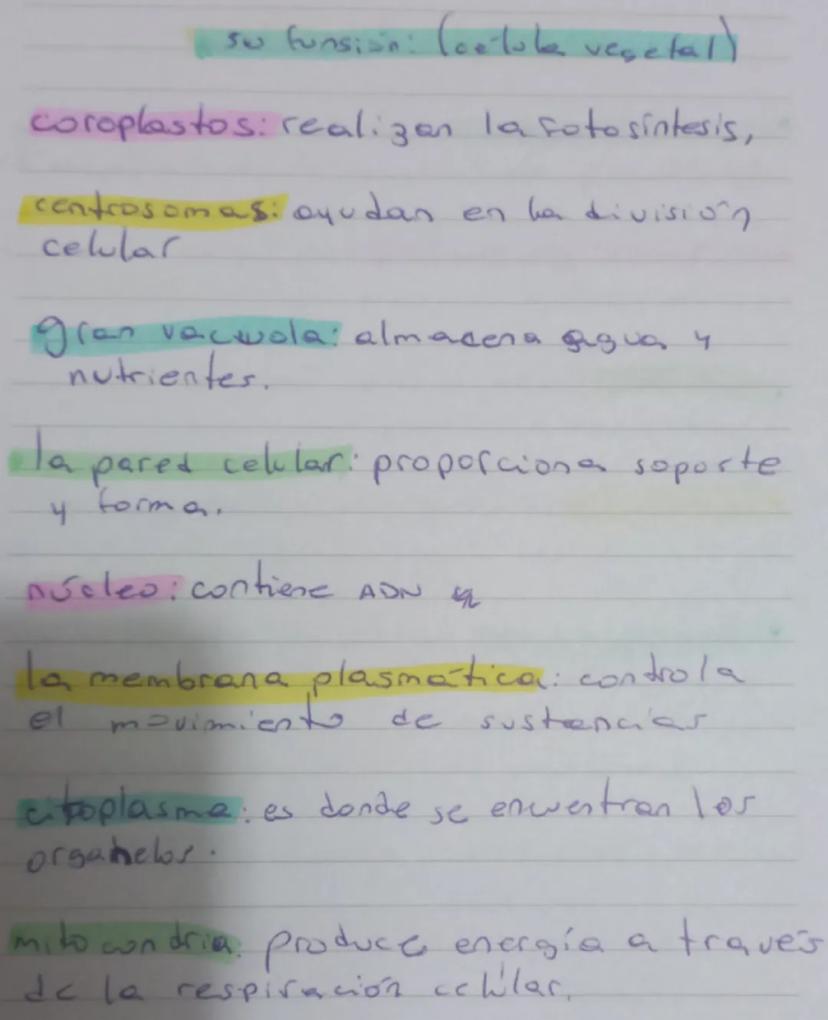 su funsión: (celula vegetal)
coroplastos: realizan la fotosíntesis,
centrosomas: ayudan en la división
celular
gran vacuola: almacena agua y
nutrientes.
la pared celular: proporciona soporte
y forma.
núcleo: contiene ADN
la membrana plasmática: controla
el movimiento de sustancias
citoplasma: es donde se encuentran los
organelos.
mitocondria: produce energía a través
de la respiración celular.